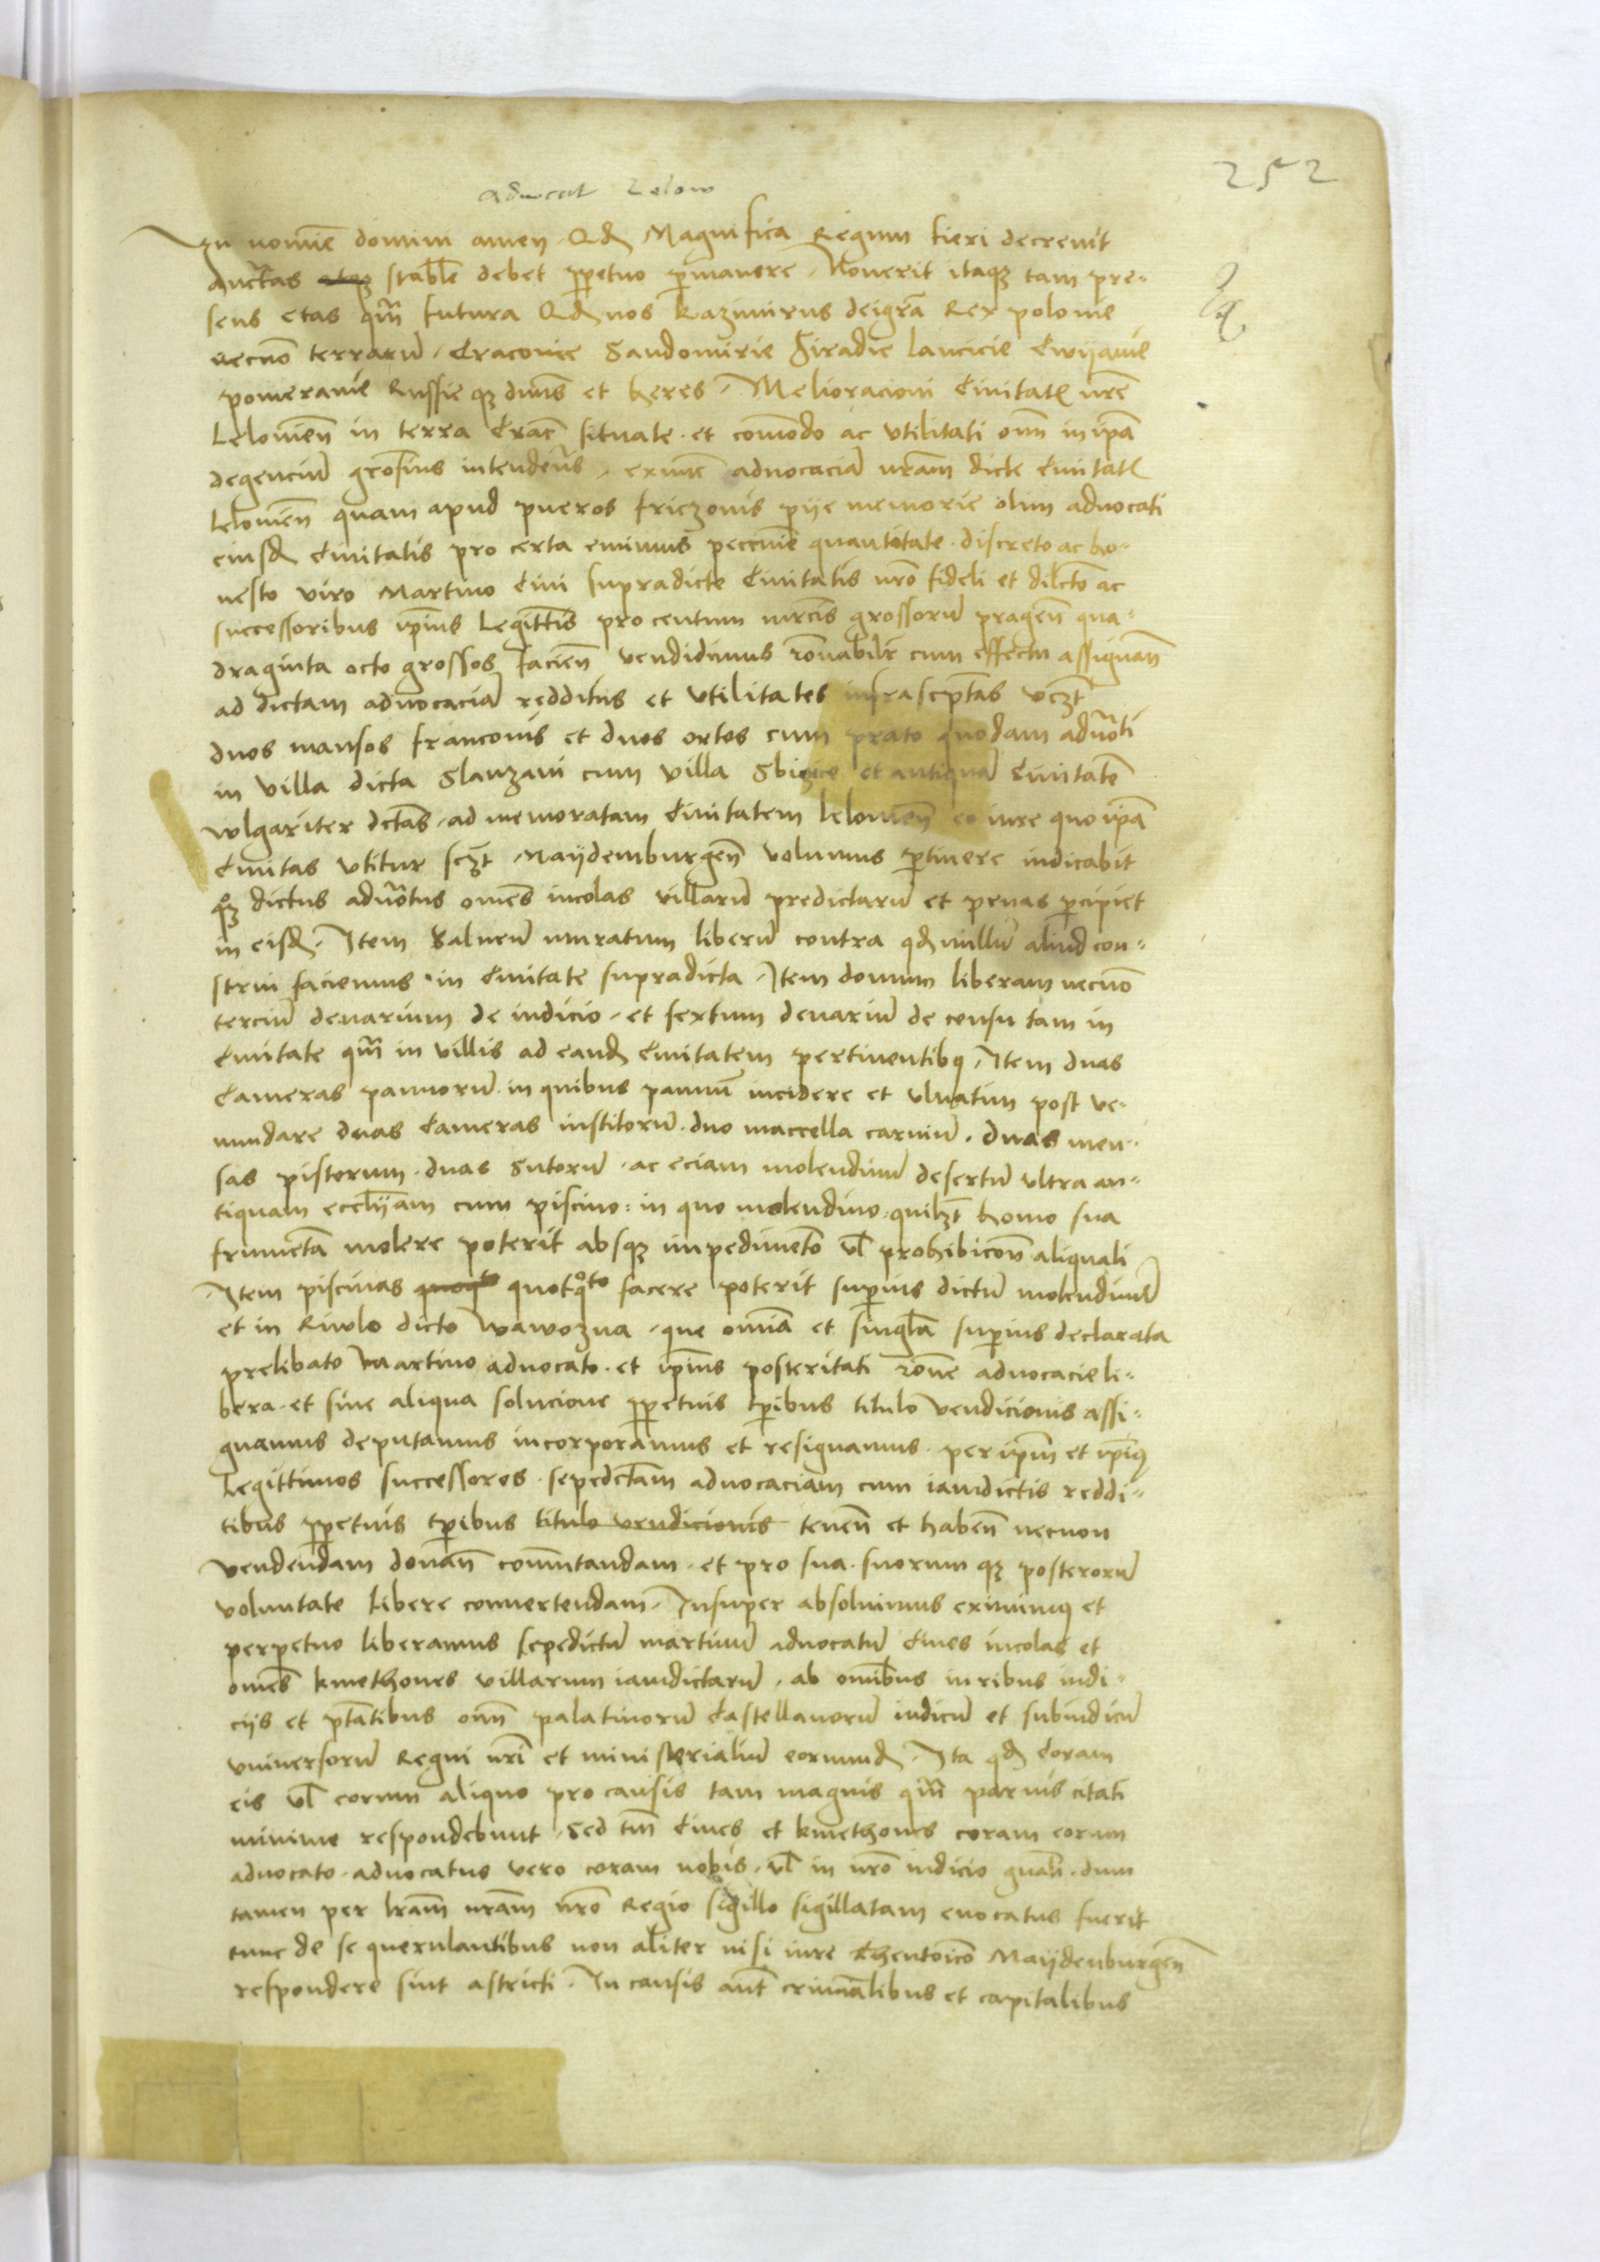 252
Aduocat Lelow
In nomīe domini amen Qđ Magnifica Regum fieri decreuit
auctās stabīle debet ꝑpetuo ꝑmanere Nouerit itaqꝫ tam pre-
sens etas qm̄ futura Qđ nos Kazimirus dei grā Rex polonie
necnō terrarū Cracouie Sandomirie Siradie lancicie Cuyauie
pomeranie Russie qꝫ dnūs et heres Melioracioni Ciuitatꝭ nrē
Leloviēn in terra Crac̄ situate et comōdo ac vtilitati om̄n in ipā
degenciū grosīus intendētes aduocaciā nrām dicte Ciuitatꝭ
leloviēn quam apud pueros friczonis pije memorie olim aduocati
eiusđ Ciuitatis pro certa emimus peccunie quantitate discreto ac ho-
nesto viro Martino Ciui supradicte Ciuitatis nrō fideli et dilcto ac
successoribus ipīus Legittīs pro centum mrcis grossorū pragēn qua-
draginta octo grossos faciēn vendidimus rōnabilr̄ cum effectu assignān
ad dictam aduocaciā redditus et vtilitates infrascp̄tas vcꝫt
duos mansos franconis et duos ortos cum prato quodam aduōti
in villa dicta Slanzani cum villa Sbicice et antiquā Ciuitatē
wlgariter dctās ad memoratam Ciuitatem leloviēn eo iure quo ipā
Ciuitas vtitur scꝫt Maydemburgēn volumus ꝑtinere iudicabit
qꝫ dictus aduōtus omēs incolas villarū predictarū et penas ꝑcipiet
in eisđ Item Balneū muratum liberū contra qđ nullū aliud con-
strui faciemus in Ciuitate supradicta Item domum liberam necnō
terciū denarium de iudicio et sextum denariū de censu tam in
Ciuitate qm̄ in villis ad eanđ Ciuitatem pertinentibꝫ Item duas
Cameras pannorū in quibus pannū incidere et vlnatim post ve-
nundare duas Cameras institorū duo maccella carniū duas men-
sas pistorum duas Sutorū ac eciam molendinū desertū vltra an-
tiquam eccliām cum piscina in quo molendino quilꝫt homo sua
frumēta molere poterit absqꝫ impedimēto vl̄ prohibicoē aliquali
Item piscinas quoqꝫ quotqͦto facere poterit suꝑius dictū molendinū
et in Riwlo dicto Wawozna que omnīa et singlā suꝑius declarata
prelibato Martino aduocato et ipīus posteritati rōne aduocacie li-
bera et sine aliqua solucione ꝑpetuis tꝑibus titulo vendicionis assi-
gnamus deputamus incorporamus et resignamus per ipm̄ et ipīꝰ
Legittimos successores sepedctām aduocaciam cum iamdictis reddi-
tibus ꝑpetuis tꝑibus titulo vendicionis tenēn et habēn necnon
vendendam donān comutandam et pro sua suorum qꝫ posterorū
voluntate libere conuertendam Insuper absoluimus eximimꝰ et
perpetuo liberamus sepedictū martinū aduocatū Ciues incolas et
omēs kmethones villarum iamdictarū ab omībus iuribus iudi-
cijs et ptātibus om̄n palatinorū Castellanorū iudicū et subiudicū
vniuersorū Regni nrī et ministerialiū eorumđ Ita qđ Coram
eis vl̄ eorum aliquo pro causis tam magnis qm̄ paruis citati
minime respondebunt Sed tm̄ Ciues et kmethones coram eorum
aduocato aduocatus vero coram nobis vl̄ in nrō iudicio gnāli dum
tamen per lrām nrām nrō Regio sigillo sigillatam euocatus fuerit
tunc de se querulantibus non aliter nisi iure Theutoīco Maydenburgēn
respondere sint astricti In causis aut̄ criminālibus et capitalibus